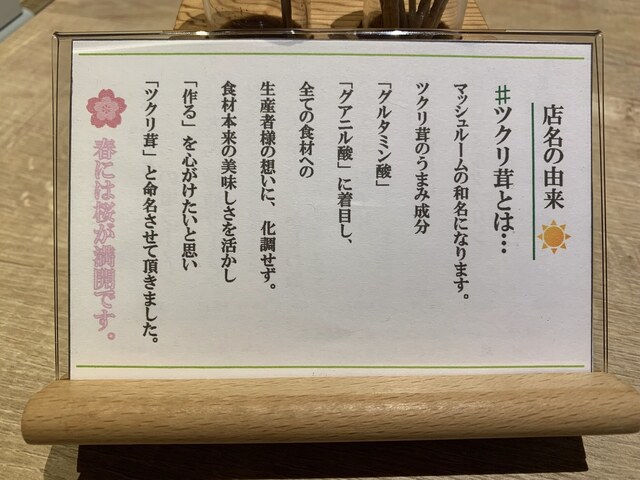 店名の由来
#ツクリ茸とは…
マッシュルームの和名になります。
ツクリ茸のうまみ成分
「グルタミン酸」
「グアニル酸」に着目し、
全ての食材への
生産者様の想いに、化調せず。
食材本来の美味しさを活かし
「作る」を心がけたいと思い
「ツクリ茸」と命名させて頂きました。
春には桜が満開です。